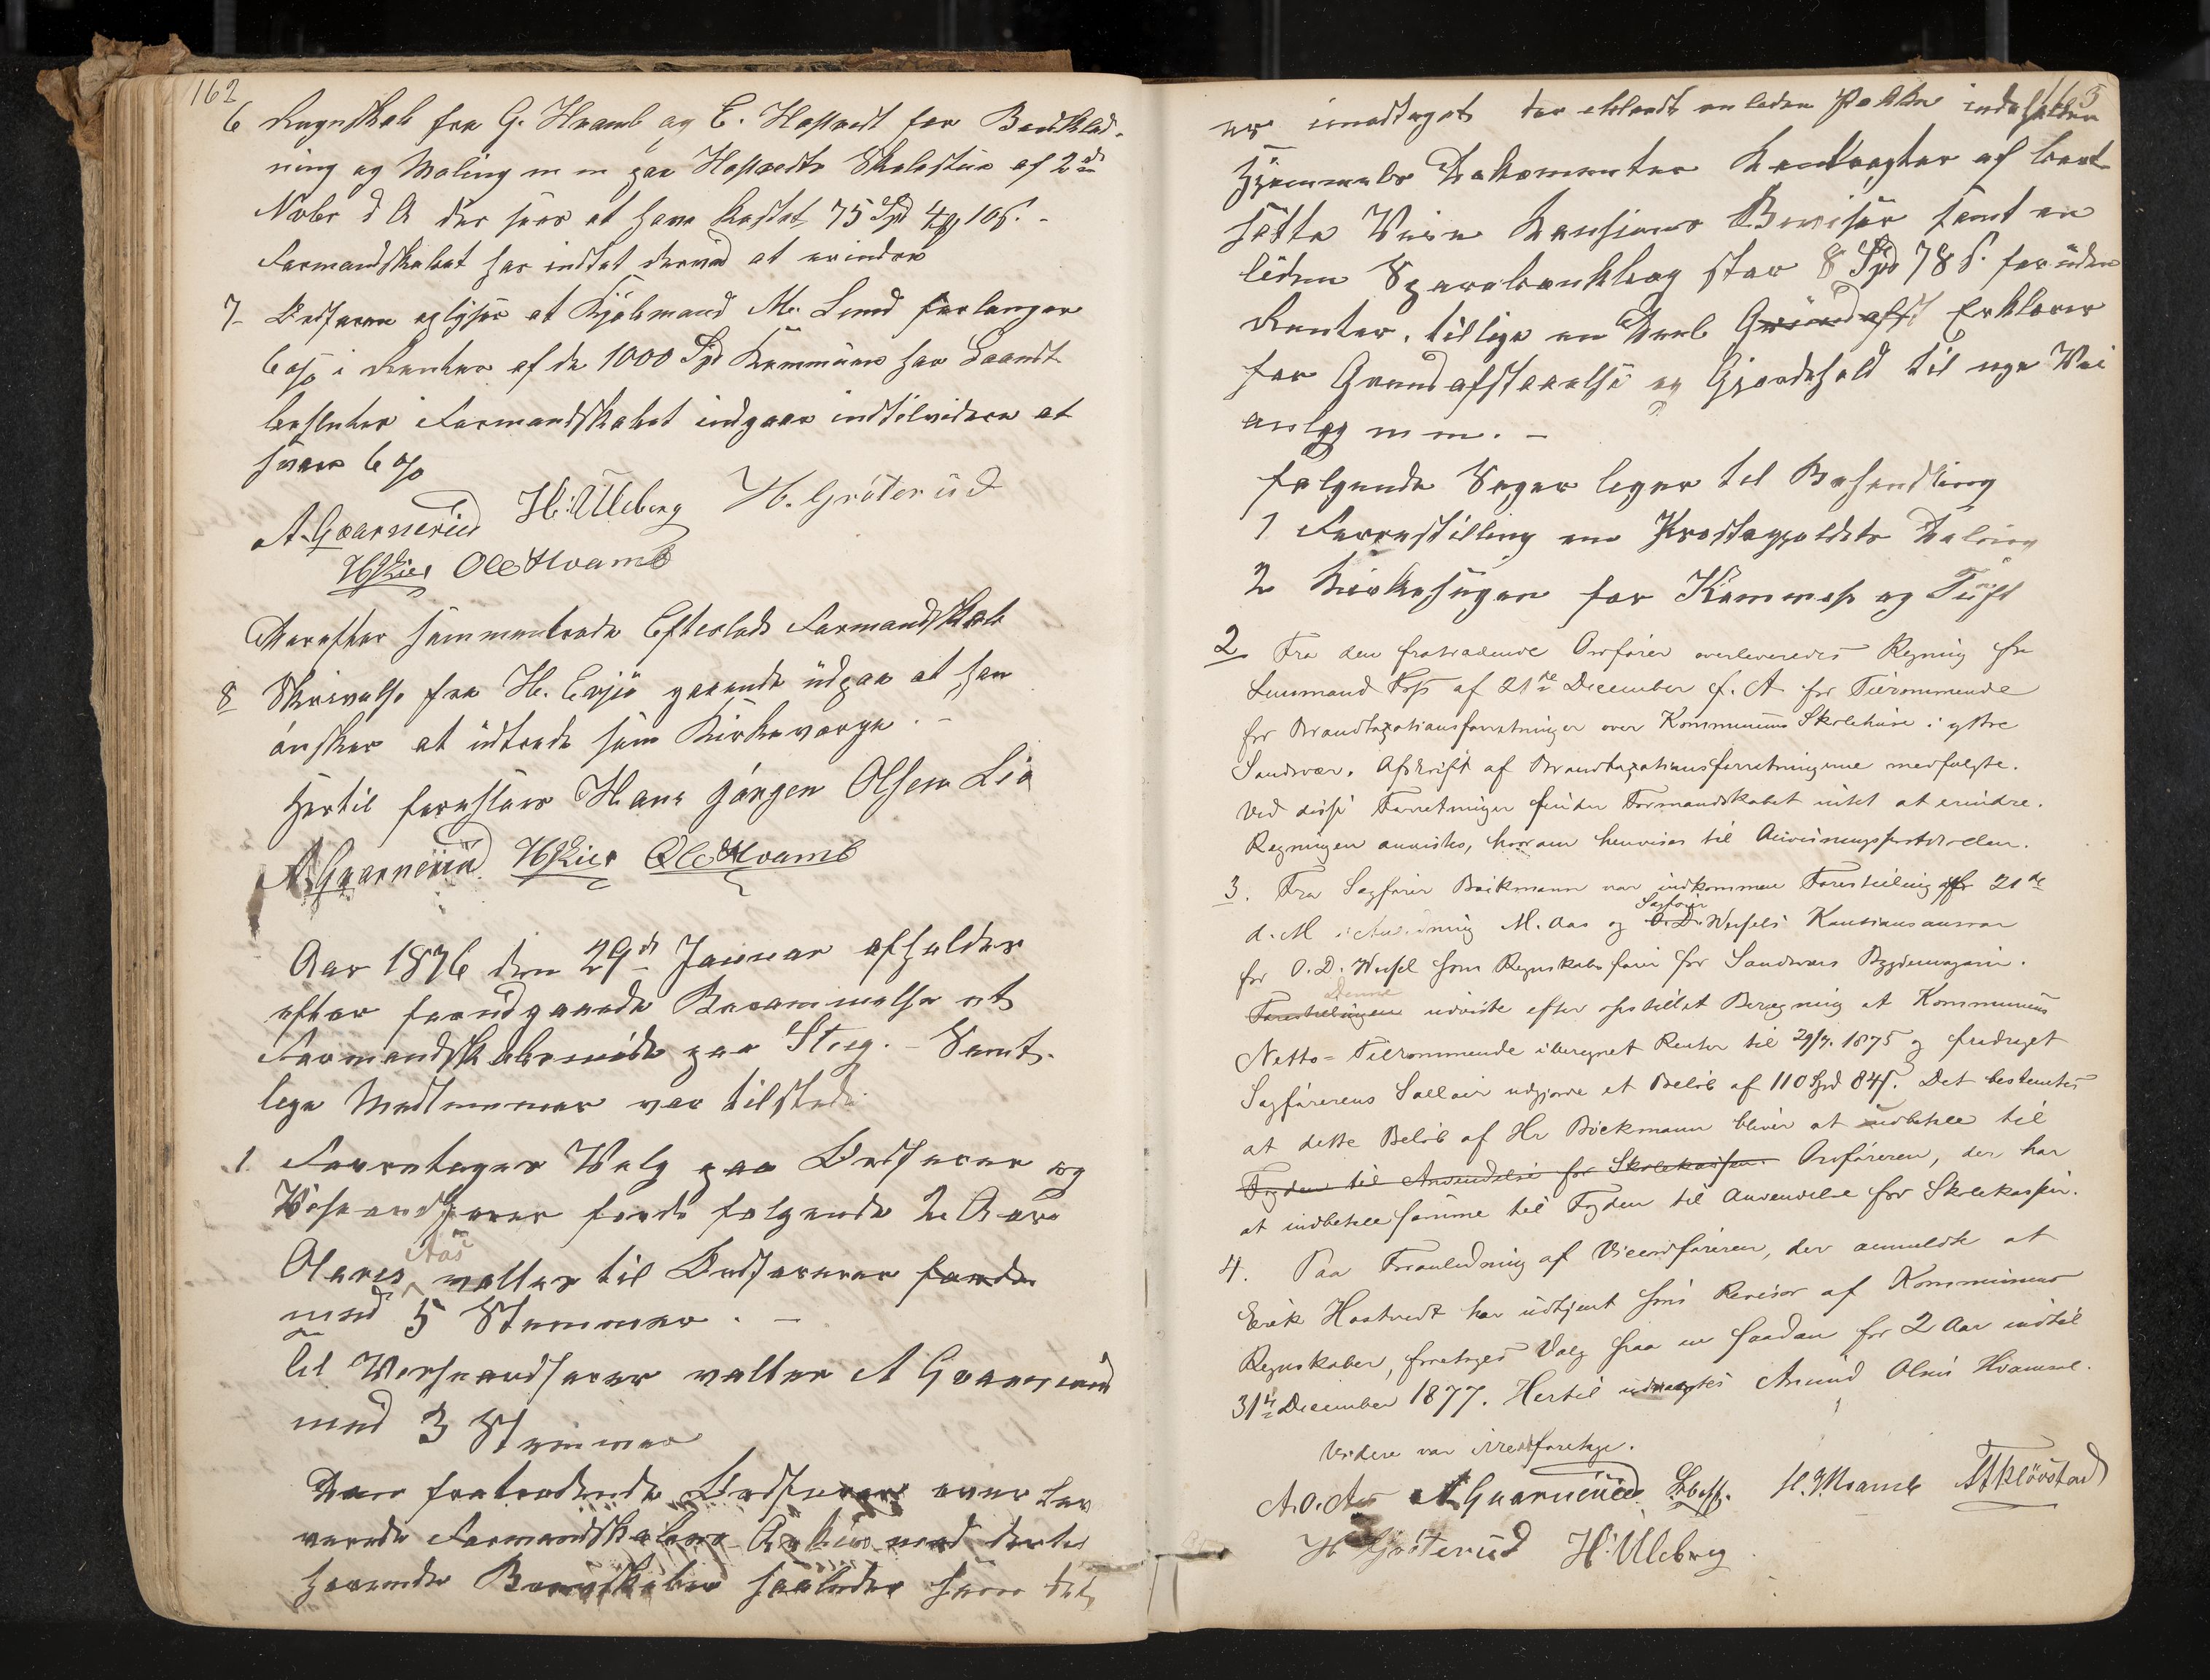 162
6 Regnskab fra G. Hvamb og E. Hostvedt for Bordklæd-
ning og Maling m m paa Hostvedts Skolestue af 2de
Novbr d A der sees at have kostet 75 Spd 4 10 s. -
Formandskabet har indtet derved at erindre
7- Ordføren oplyser at Kjøbmand M. Lund forlanger
6 o/o i Renter af de 1000 Spd Kommunen har Laant
beslutter Formandskabet indgaar indtilvidere at
svare 6 o/o
A. Gvarnerud H: Ulleberg H. Grøterud
Ole Hvamb
Derefter sammentraadte Efteslads Formandskab
8 Skrivelse fra H. Evju gaaende udpaa at han
ønsker at udtræde som Kirkeværge. -
Hertil foreslaaes Hans Jørgen Olsen Lia
A. Gvarnerud Ole Hvamb
Aar 1876 den 29de Januar afholdes
efter forudgaaende Berammelse et
Formandskabsmøde paa Steg. - Samt-
lige Medlemmer var tilstede
1. Foretages Valg paa Ordfører og
Viseordfører for de følgende 2 Aar
Aas
Olaves valtes til Ordfører for de
med 5 Stemmer. -
Til Viseordfører valtes A Gvarnerud
med 3 Stemmer
Den fratrædende Ordfører over lev
verede Formandskabets Arkiv med dertil
hørende Brevskaber saaledes som det
163
er imodtaget der iblandt en liden Pakke indeholden
Hjemmels Dokumenter Kontragter af bort
satte Veie Kautions Beviser samt en
liden Sparebankbog stor 8 Spd 78 s. foruden
Renter. tillige en Deel Grundafst Erklærer
for Grundafstaaelse og Gjærdehold til nye Vei
anlæg m m. -
følgende Sager liger til Behandling
1 Forrestilling om Prestegjældets Deling
2 Kirkesangen for Komnes og Tuft
2 Fra den fratrædende Ordfører overleveredes Regning fra
Lensmand Foss af 21de December f. A for Tilkommende
for Brandtaxationsforretninger over Kommunens Skolehuse i ytre
Sandsvær. Afskrift af Brandtaxationsforretningerne medfulgte.
Ved disse Forretninger finder Formandskabet intet at erindre.
Regningen anvistes, hvorom henvises til Anvisningsprotokollen.
3. Fra Sagfører Bøckmann var indkommen Forestilling af 21de
Sagfører
d. M i Anledning M. Aas og O. D. Wessels Kautionsansvar
for O. D. Wessel som Regnskabsfører for Sandsværs Bygdemagasin.
Denne
Forestillingen udviste efter opstillet Beregning at Kommunens
Netto-Tilkommende iberegnet Renter til 29/7. 1875 og fradraget
Sagførerens Sallair udgjorde et Beløb af 110 Spd 84 s. Det bestemtes
at dette Beløb af Hr Bøckmann bliver at indbetale til
Fogden til Anvendelse for Skolekassen. Ordføreren, der har
at indbetale samme til Fogden til Anvendelse for Skolekassen.
4. Paa Foranledning af Viceordføreren, der anmeldte at
Erik Hostvedt har udtjent som Revisor af Kommunens
Regnskaber, foretoges Valg paa en saadan for 2 Aar indtil
31te December 1877. Hertil udvalgtes Amund Olsen Hvamb.
Videre var ikke at foretage.
A. O. Aas A. Gvarnerud H. Hvamb Kløvstad
H Grøterud H: Ulleberg